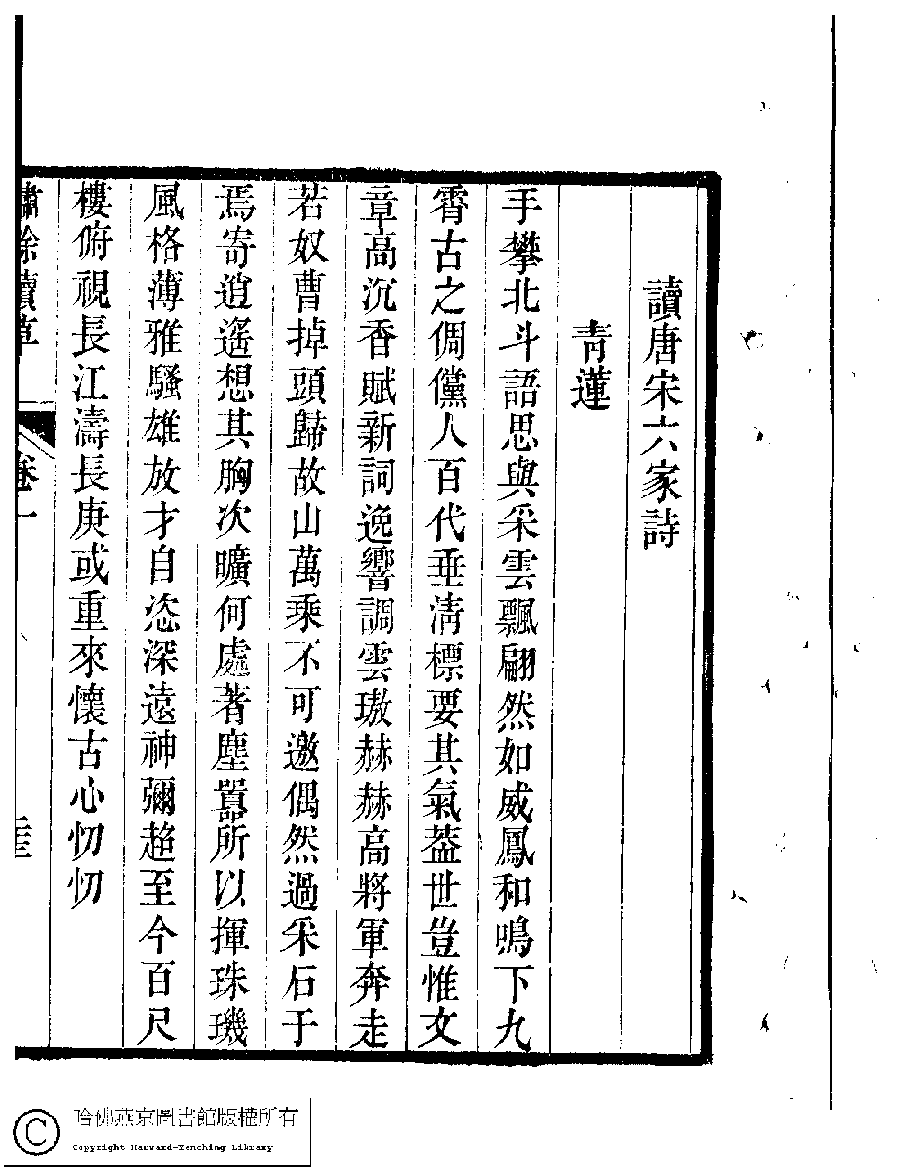 讀唐宋六家詩
青蓮
手攀北斗語思與采雲飄翩然如威鳳和鳴下九
霄古之倜儻人百代垂淸標要其氣葢世豈惟文
章高沉香賦新詞逸響調雲璈赫赫高將軍奔走
若奴曹掉頭歸故山萬乘不可邀偶然過采石于
焉寄逍遙想其胸次曠何處著塵囂所以揮珠璣
風格薄雅騷雄放才自恣深遠神彌超至今百尺
樓俯視長江濤長庚或重來懷古心忉忉
卷一
哈佛燕京圖書館版權所有
Copyright Harvard-Yenching Library